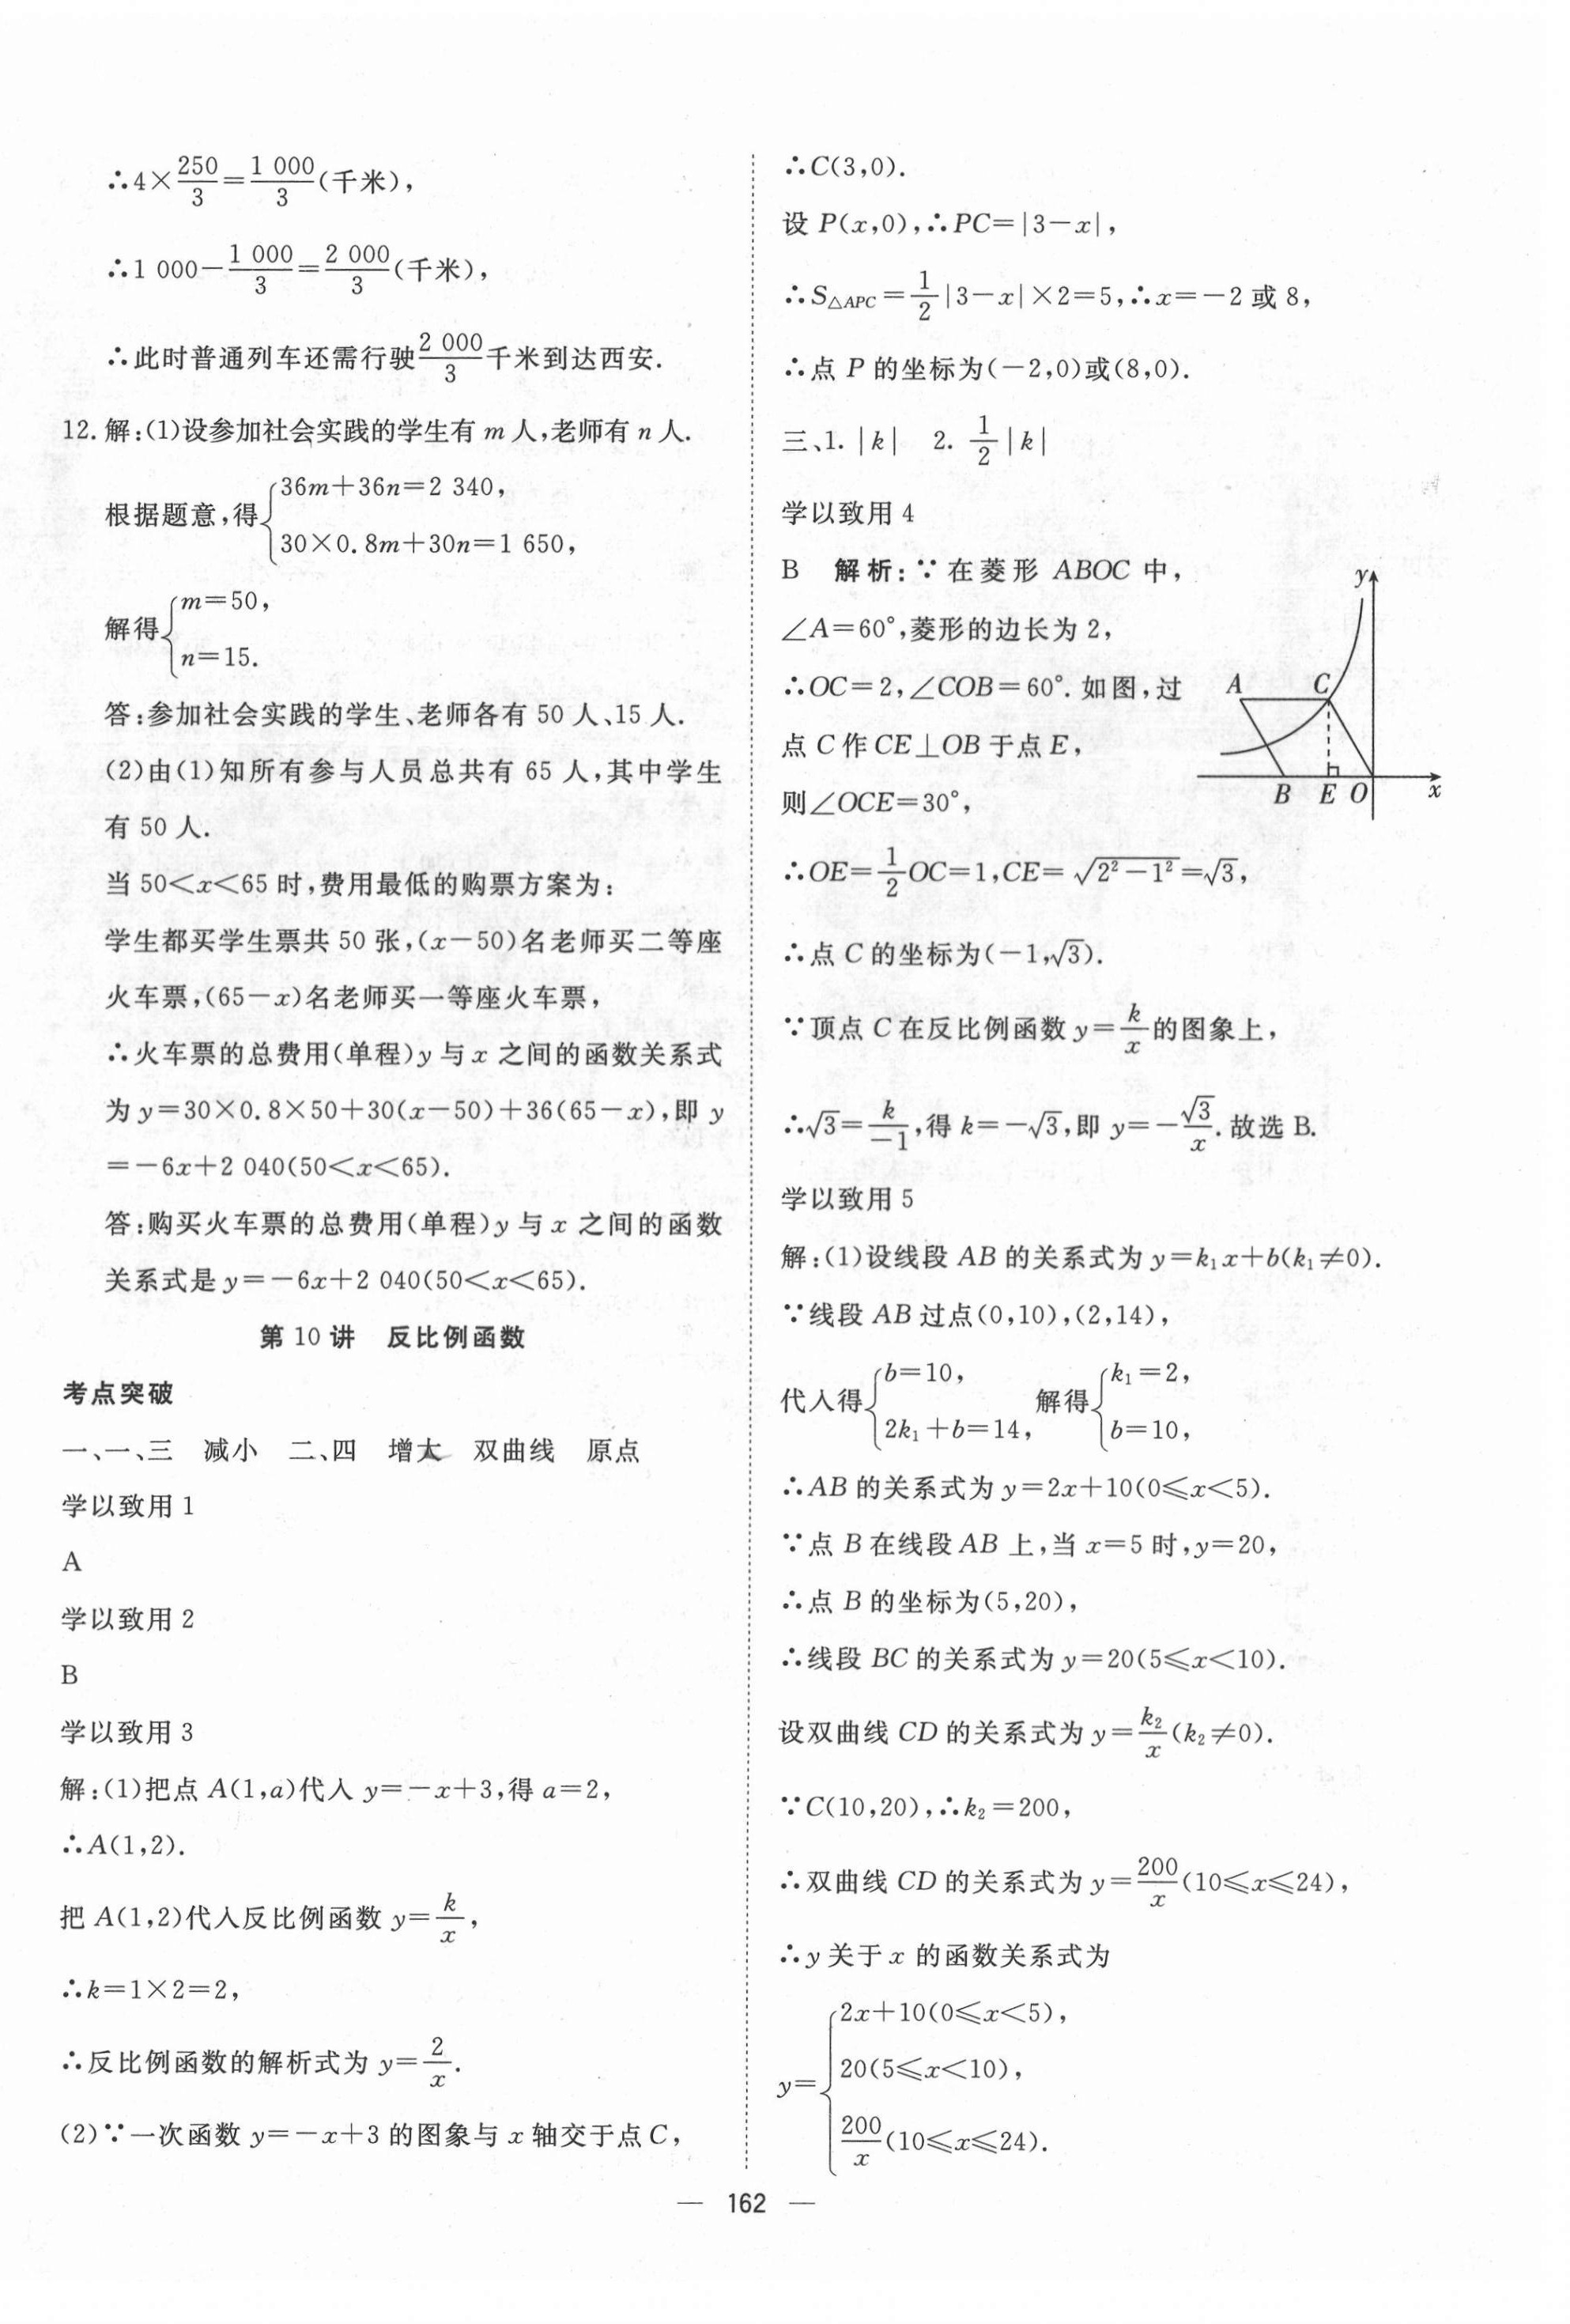 ∴4×250/3=1 000/3(千米),
∴1 000−1 000/3=2 000/3(千米),
∴此时普通列车还需行驶2 000/3千米到达西安.
12.解:(1)设参加社会实践的学生有 m 人,老师有 n 人.
根据题意,得{36m+36n=2 340,
30×0.8m+30n=1 650,
解得{m=50,
n=15.
答:参加社会实践的学生、老师各有 50 人、15 人.
(2)由(1)知所有参与人员总共有 65 人,其中学生
有 50 人.
当 50<x<65 时,费用最低的购票方案为:
学生都买学生票共 50 张,(x−50)名老师买二等座
火车票,(65−x)名老师买一等座火车票,
∴火车票的总费用(单程)y 与 x 之间的函数关系式
为 y=30×0.8×50+30(x−50)+36(65−x),即 y
=−6x+2 040(50<x<65).
答:购买火车票的总费用(单程)y 与 x 之间的函数
关系式是 y=−6x+2 040(50<x<65).
第 10 讲 反比例函数
考点突破
一、一、三 减小 二、四 增大 双曲线 原点
学以致用 1
A
学以致用 2
B
学以致用 3
解:(1)把点 A(1,a)代入 y=−x+3,得 a=2,
∴A(1,2).
把 A(1,2)代入反比例函数 y=k/x,
∴k=1×2=2,
∴反比例函数的解析式为 y=2/x.
(2)∵一次函数 y=−x+3 的图象与 x 轴交于点 C,
∴C(3,0).
设 P(x,0),∴PC=|3−x|,
∴S△APC=1/2|3−x|×2=5,∴x=−2 或 8,
∴点 P 的坐标为(−2,0)或(8,0).
三、1. |k| 2. 1/2|k|
学以致用 4
B 解析:∵在菱形 ABOC 中,
∠A=60°,菱形的边长为 2,
∴OC=2,∠COB=60°.如图,过
点 C 作 CE⊥OB 于点 E,
则∠OCE=30°,
y
A C
B E O x
∴OE=1/2OC=1,CE=√(2²−1²)=√3,
∴点 C 的坐标为(−1,√3).
∵顶点 C 在反比例函数 y=k/x的图象上,
∴√3=k/−1,得 k=−√3,即 y=−√3/x.故选 B.
学以致用 5
解:(1)设线段 AB 的关系式为 y=k₁x+b(k₁≠0).
∵线段 AB 过点(0,10),(2,14),
代入得{b=10, 解得{k₁=2,
2k₁+b=14, b=10,
∴AB 的关系式为 y=2x+10(0⩽x<5).
∵点 B 在线段 AB 上,当 x=5 时,y=20,
∴点 B 的坐标为(5,20),
∴线段 BC 的关系式为 y=20(5⩽x<10).
设双曲线 CD 的关系式为 y=k₂/x(k₂≠0).
∵C(10,20),∴k₂=200,
∴双曲线 CD 的关系式为 y=200/x(10⩽x⩽24),
∴y 关于 x 的函数关系式为
y={2x+10(0⩽x<5),
20(5⩽x<10),
200/x(10⩽x⩽24).
— 162 —